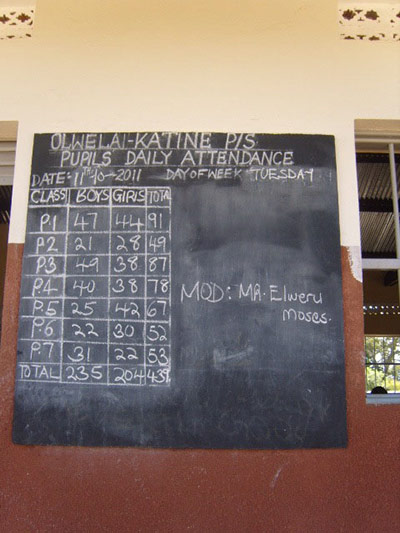 OLWELAI-KATINE P/S
PUPILS DAILY ATTENDANCE
DATE: 11TH-10-2011 DAY OF WEEK TUESDAY
CLASS BOYS GIRLS TOTAL
P.1 47 44 91
P2 21 28 49
P3 49 38 87
P.4 40 38 78
P.5 25 42 67
P.6 22 30 52
P.7 31 22 53
TOTAL 235 204 439
MOD: MR. Elweru
Moses.